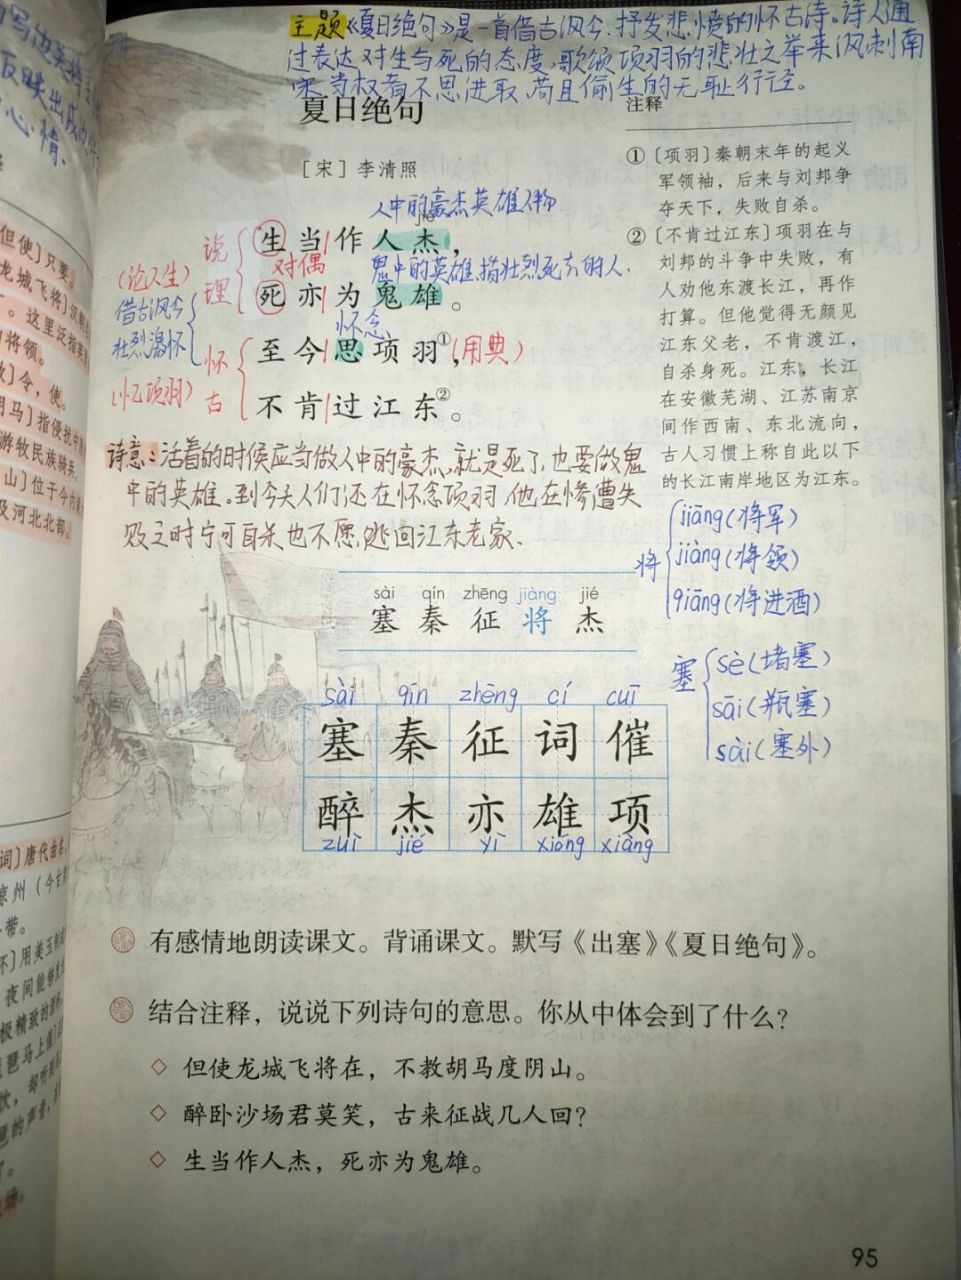 主题《夏日绝句》是一首借古讽今、抒发悲愤的怀古诗。诗人通
过表达对生与死的态度,歌颂项羽的悲壮之举来讽刺南
宋当权者不思进取、苟且偷生的无耻行径。
夏日绝句
[宋] 李清照
人中的豪杰英雄人物
jié
生当作人杰，
说理
对偶
鬼中的英雄,指壮烈死去的人.
死亦为鬼雄。
(论人生)
借古讽今
壮烈激怀
(忆项羽)
怀念
至今思项羽①，(用典)
怀古
不肯过江东②。
诗意:活着的时候应当做人中的豪杰,就是死了,也要做鬼
中的英雄。到今天人们还在怀念项羽,他在惨遭失
败之时宁可自杀也不愿逃回江东老家.
注释
① [项羽] 秦朝末年的起义
军领袖，后来与刘邦争
夺天下，失败自杀。
② [不肯过江东] 项羽在与
刘邦的斗争中失败，有
人劝他东渡长江，再作
打算。但他觉得无颜见
江东父老，不肯渡江，
自杀身死。江东，长江
在安徽芜湖、江苏南京
间作西南、东北流向，
古人习惯上称自此以下
的长江南岸地区为江东。
将
jiāng(将军)
jiàng(将领)
qiāng(将进酒)
sài qín zhēng jiàng jié
塞 秦 征 将 杰
塞
sè(堵塞)
sāi(瓶塞)
sài(塞外)
sài qín zhēng cí cuī
塞 秦 征 词 催
醉 杰 亦 雄 项
zuì jié yì xióng xiàng
有感情地朗读课文。背诵课文。默写《出塞》《夏日绝句》。
结合注释，说说下列诗句的意思。你从中体会到了什么？
◇ 但使龙城飞将在，不教胡马度阴山。
◇ 醉卧沙场君莫笑，古来征战几人回？
◇ 生当作人杰，死亦为鬼雄。
95
但使] 只要。
龙城飞将] 汉朝
。这里泛指英
将领。
] 令，使。
胡马] 指侵扰中
游牧民族骑兵。
山] 位于今内
及河北北部。
词] 唐代曲名
凉州（今甘
带。
] 用美玉制
夜间能够
极精致的酒
琵琶马上催
心情.